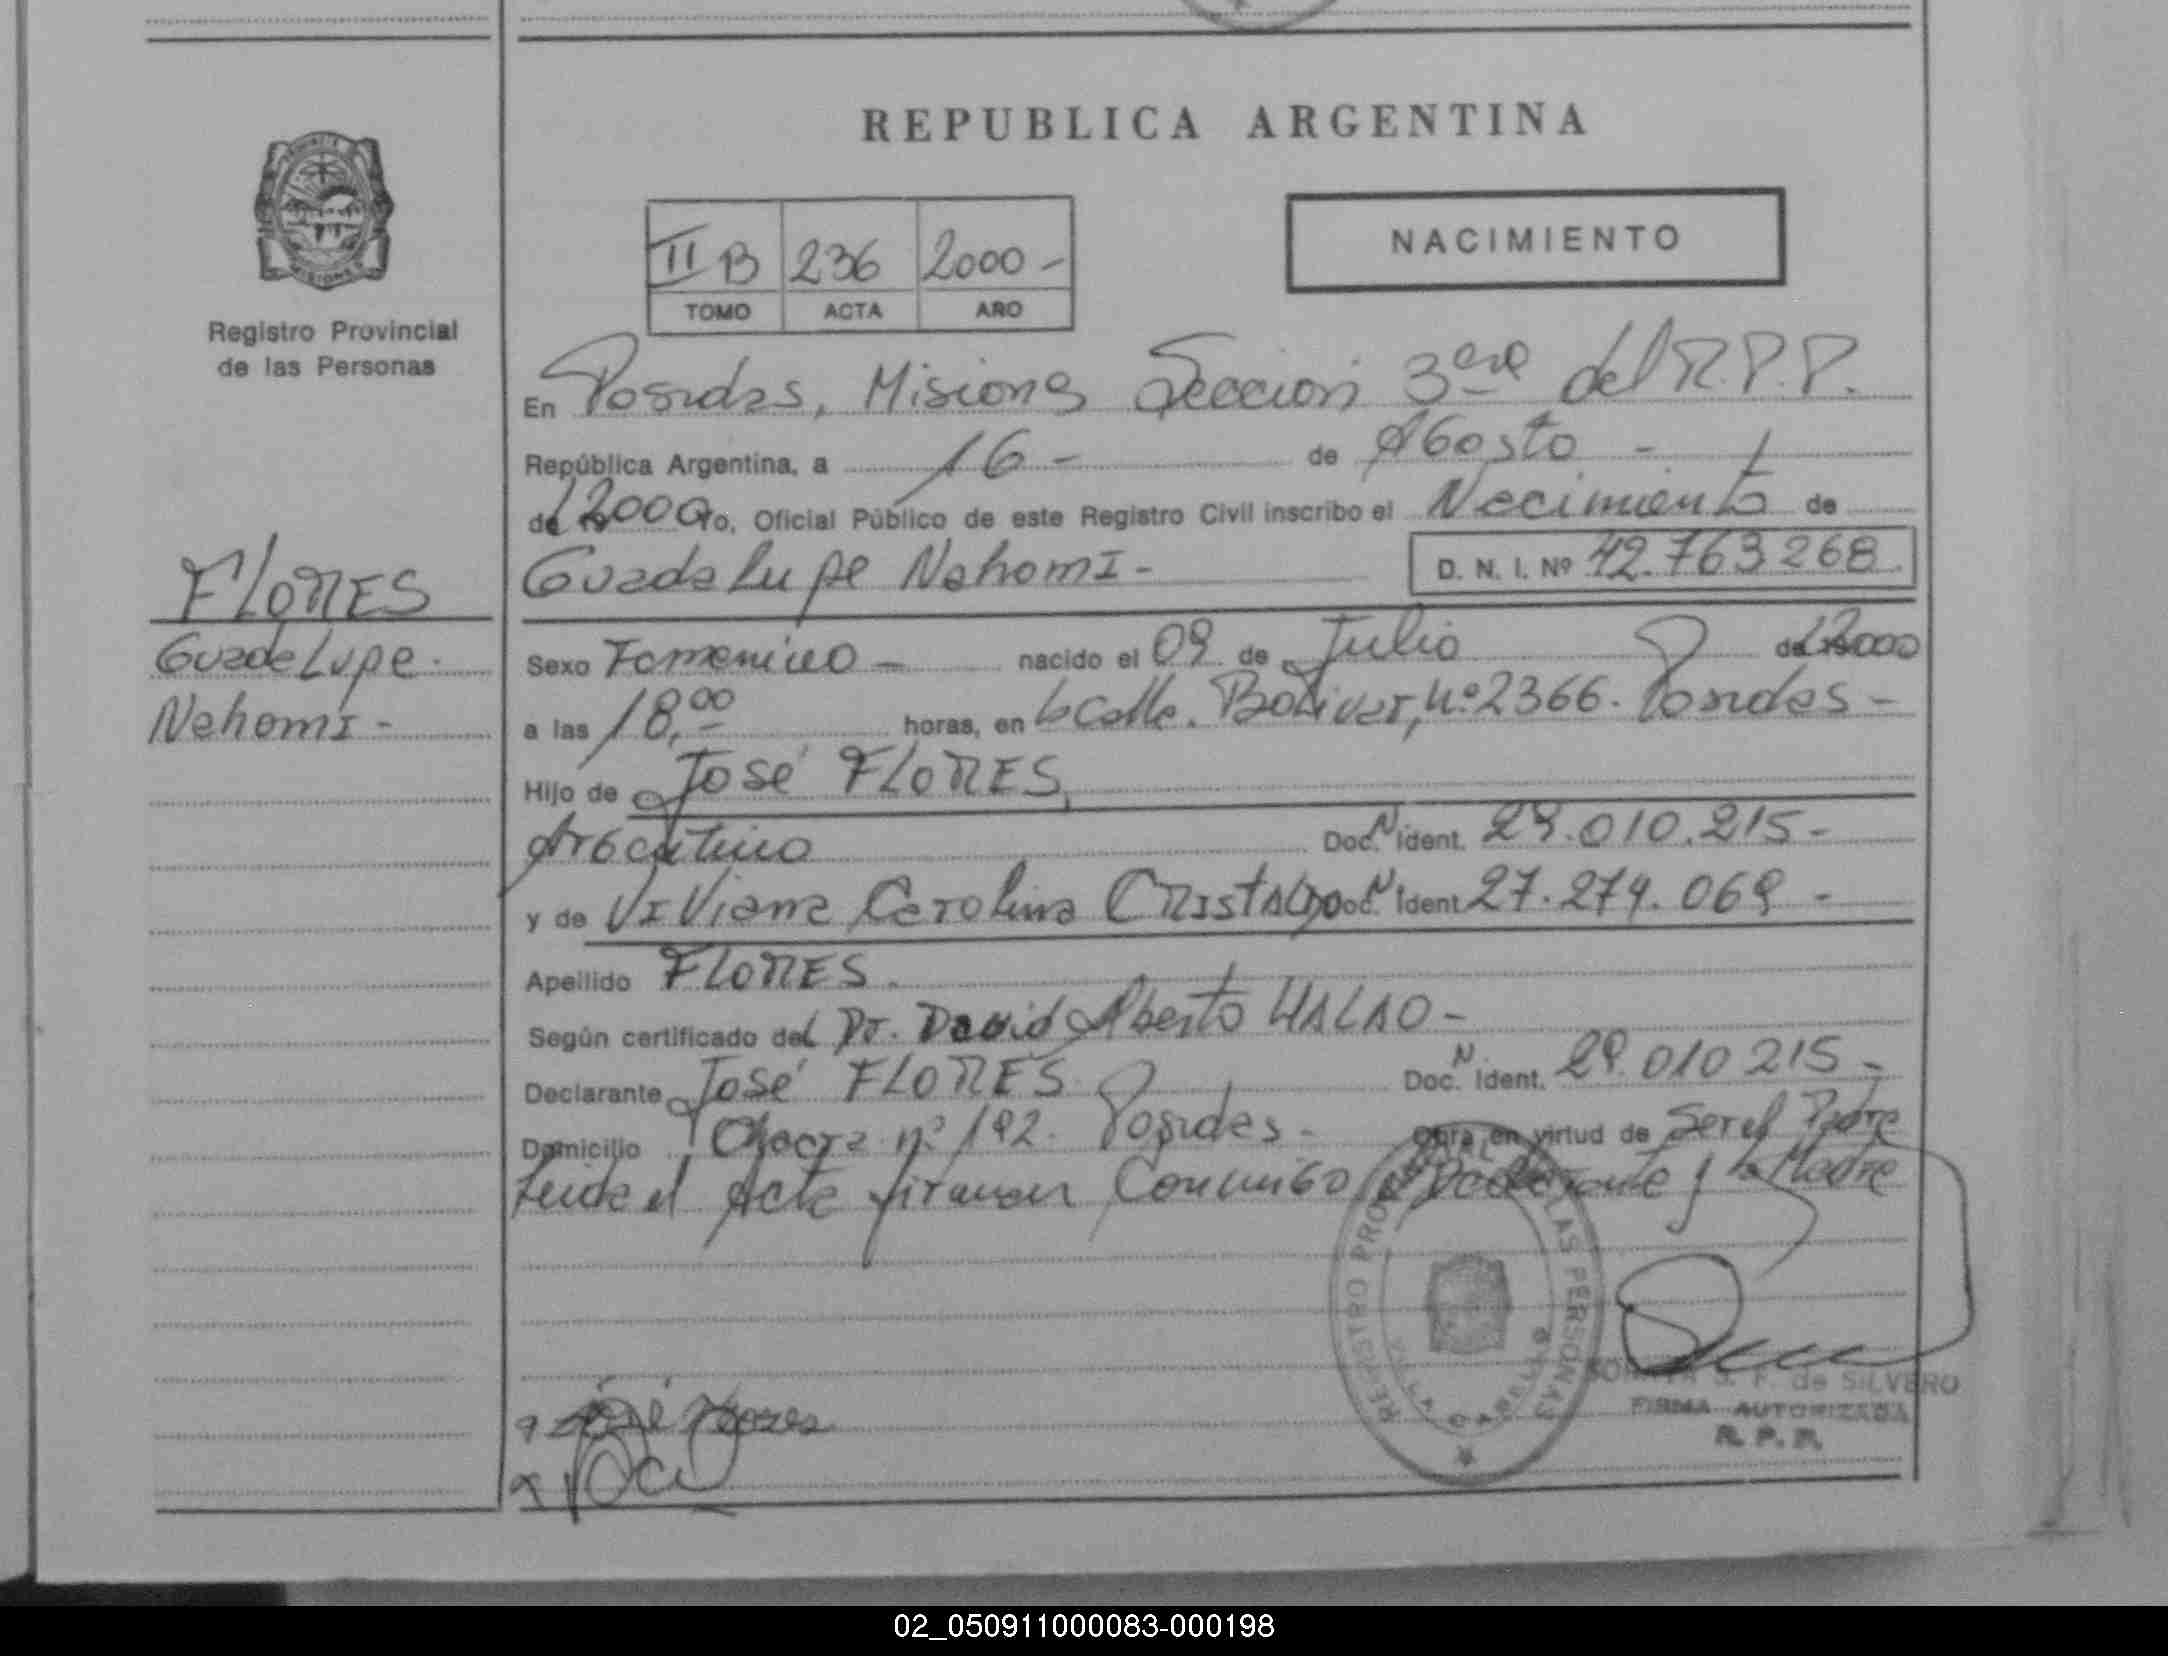 REPUBLICA ARGENTINA
NACIMIENTO
II B 236 2000 -
TOMO ACTA AÑO
Registro Provincial
de las Personas
En Posadas, Misiones Sección 3era del R.P.P.
República Argentina, a 16 - de Agosto -
de 2000 Yo, Oficial Público de este Registro Civil inscribo el Nacimiento de
Guadalupe Nahomi - D. N. I. Nº 42.763268
FLORES
Guadelupe.
Nahomi -
Sexo Femenino - nacido el 09 de Julio de 2000
a las 18,00 horas, en la calle. Bolivar, nº 2366. Posadas -
Hijo de José FLORES,
Argentino Doc. N Ident. 29.010.215 -
y de Viviana Carolina CRISTALDO Doc. N Ident 27.274.069 -
Apellido FLORES.
Según certificado del Dr. David Alberto HALAO -
Declarante José FLORES Doc. N. Ident. 29.010 215 -
Domicilio Chacra nº 192. Posadas - Obra en virtud de Ser el Padre
Leida el Acta firman Conmigo Declarante y la Madre
José Flores
REGISTRO PROVINCIAL DE LAS PERSONAS
VILLA CABELLO
S. F. de SILVERO
FIRMA AUTORIZADA
R. P. P.
02_050911000083-000198